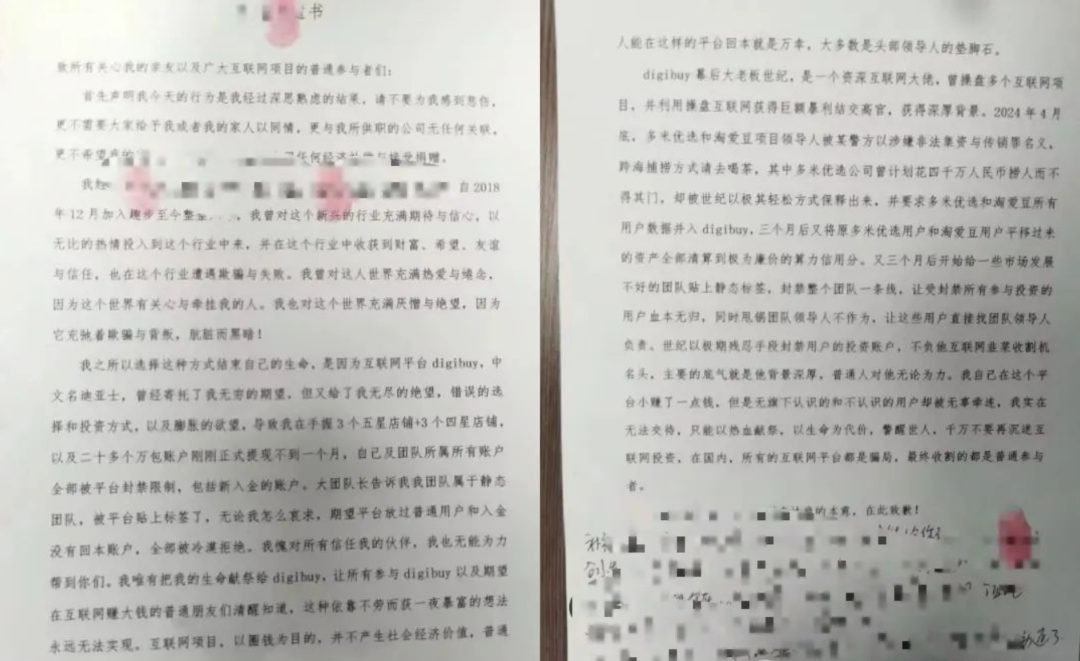 书
致所有关心我的亲友以及广大互联网项目的普通参与者们：
首先声明我今天的行为是我经过深思熟虑的结果，请不要为我感到悲伤，
更不需要大家给予我或者我的家人以同情，更与我所供职的公司无任何关联，
更不希望
自2018
年12月加入 至今整 我曾对这个新兴的行业充满期待与信心，以
无比的热情投入到这个行业中来，并在这个行业中收获到财富、希望、友谊
与信任，也在这个行业遭遇欺骗与失败。我曾对这人世界充满热爱与 念，
因为这个世界有关心与牵挂我的人。我也对这个世界充满厌憎与绝望，因为
它充 着欺骗与背叛，肮脏而黑暗！
我之所以选择这种方式结束自己的生命，是因为互联网平台digibuy，中
文名迪亚士，曾经寄托了我无穷的期望，但又给了我无尽的绝望，错误的选
择和投资方式，以及膨胀的欲望，导致我在手握3个五星店铺+3个四星店铺，
以及二十多个万包账户刚刚正式提现不到一个月，自己及团队所属所有账户
全部被平台封禁限制，包括新入金的账户。大团队长告诉我我团队属于静态
团队，被平台贴上标签了，无论我怎么哀求，期望平台放过普通用户和入金
没有回本账户，全部被冷漠拒绝。我愧对所有信任我的伙伴，我也无能为力
帮到你们。我唯有把我的生命献祭给digibuy，让所有参与digibuy以及期望
在互联网赚大钱的普通朋友们清醒知道，这种依靠不劳而获一夜暴富的想法
永远无法实现。互联网项目，以圈钱为目的，并不产生社会经济价值，普通
人能在这样的平台回本就是万幸，大多数是头部领导人的垫脚石。
digibuy幕后大老板世纪，是一个资深互联网大佬，曾操盘多个互联网项
目，并利用操盘互联网获得巨额暴利结交高官，获得深厚背景。2024年4月
底，多米优选和淘爱豆项目领导人被某警方以涉嫌非法集资与传销罪名义，
跨海捕捞方式请去喝茶，其中多米优选公司曾计划花四千万人民币捞人而不
得其门，却被世纪以极其轻松方式保释出来，并要求多米优选和淘爱豆所有
用户数据并入digibuy，三个月后又将原多米优选用户和淘爱豆用户平移过来
的资产全部清算到极为廉价的算力信用分。又三个月后开始给一些市场发展
不好的团队贴上静态标签，封禁整个团队一条线，让受封禁所有参与投资的
用户血本无归，同时甩锅团队领导人不作为，让这些用户直接找团队领导人
负责。世纪以极期残忍手段封禁用户的投资账户，不负他互联网韭菜收割机
名头，主要的底气就是他背景深厚，普通人对他无论为力。我自己在这个平
台小赚了一点钱，但是无旗下认识的和不认识的用户却被无事牵连，我实在
无法交待，只能以热血献祭，以生命为代价，警醒世人，千万不要再沉迷互
联网投资，在国内，所有的互联网平台都是骗局，最终收割的都是普通参与
者。
在此致歉！